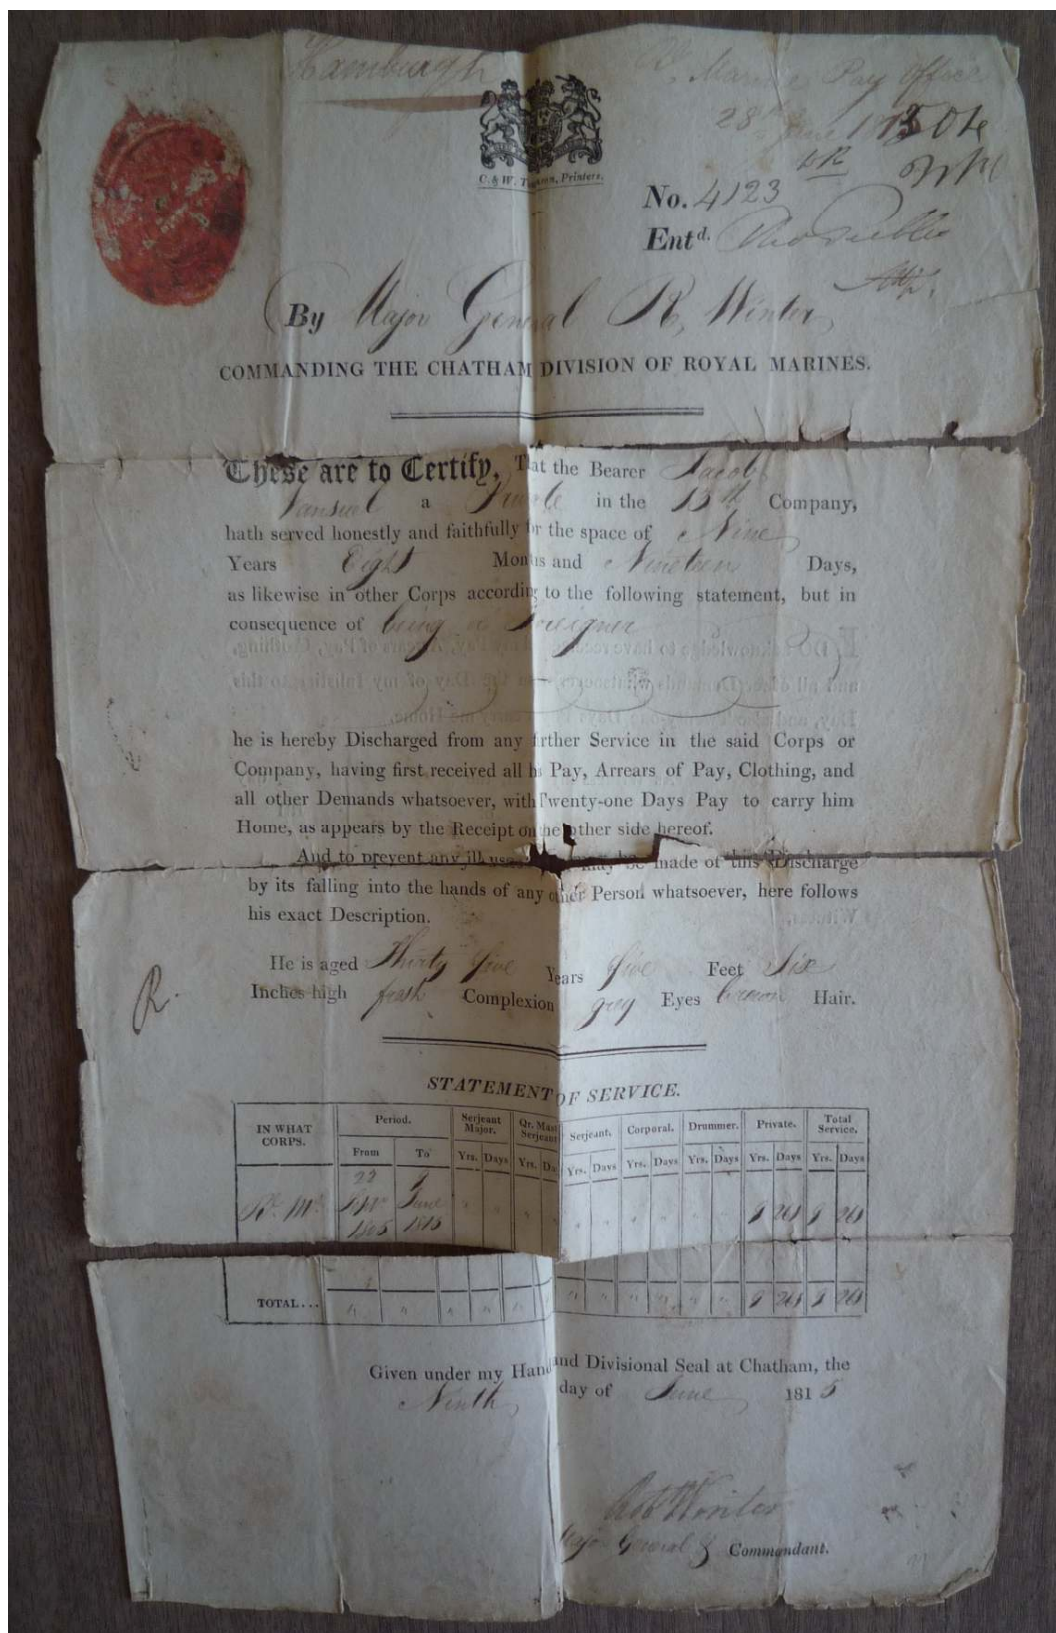 Hamburgh
R. Marine Pay Office
28th June 1815
C. & W. Printers.
No. 4123
Entd.
By Major General R, Winter
COMMANDING THE CHATHAM DIVISION OF ROYAL MARINES.
These are to Certify, That the Bearer Jacob
Vansuel a Private in the 13th Company,
hath served honestly and faithfully for the space of Nine
Years Eight Months and Nineteen Days,
as likewise in other Corps according to the following statement, but in
consequence of being a Foreigner
he is hereby Discharged from any further Service in the said Corps or
Company, having first received all his Pay, Arrears of Pay, Clothing, and
all other Demands whatsoever, with Twenty-one Days Pay to carry him
Home, as appears by the Receipt on the other side hereof.
And to prevent any ill use may be made of this Discharge
by its falling into the hands of any other Person whatsoever, here follows
his exact Description.
He is aged Thirty five Years five Feet Six
Inches high fresh Complexion grey Eyes brown Hair.
R.
STATEMENT OF SERVICE.
IN WHAT CORPS. Period. Serjeant Major. Qr. Mast Serjeant Serjeant. Corporal. Drummer. Private. Total Service.
From To Yrs. Days Yrs. Da Yrs. Days Yrs. Days Yrs. Days Yrs. Days Yrs. Days
22 9
Rl. Ms. Sepr June " " " " " " " " " " 9 261 9 261
1805 1815
TOTAL... " " " " " " " " " " 9 261 9 261
Given under my Hand and Divisional Seal at Chatham, the
Ninth day of June 1815
Rob Winter
Major General & Commandant.